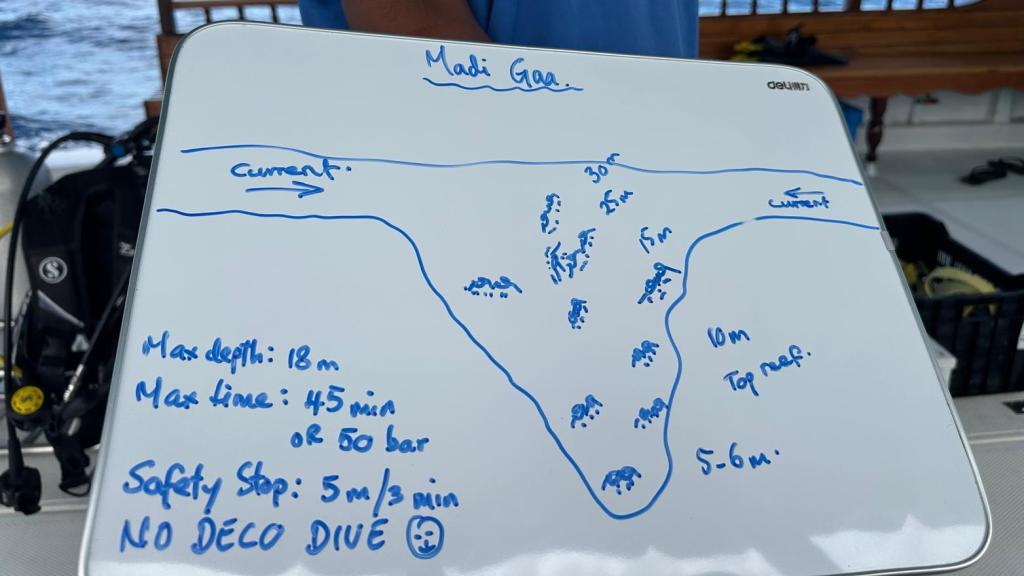 Madi Gaa.
deli得力
Current.
30m
25m
current
15m
10m
Top reef.
5-6m.
Max depth: 18m
Max time: 45 min
OR 50 bar
Safety Stop: 5m/3 min
NO DECO DIVE
S